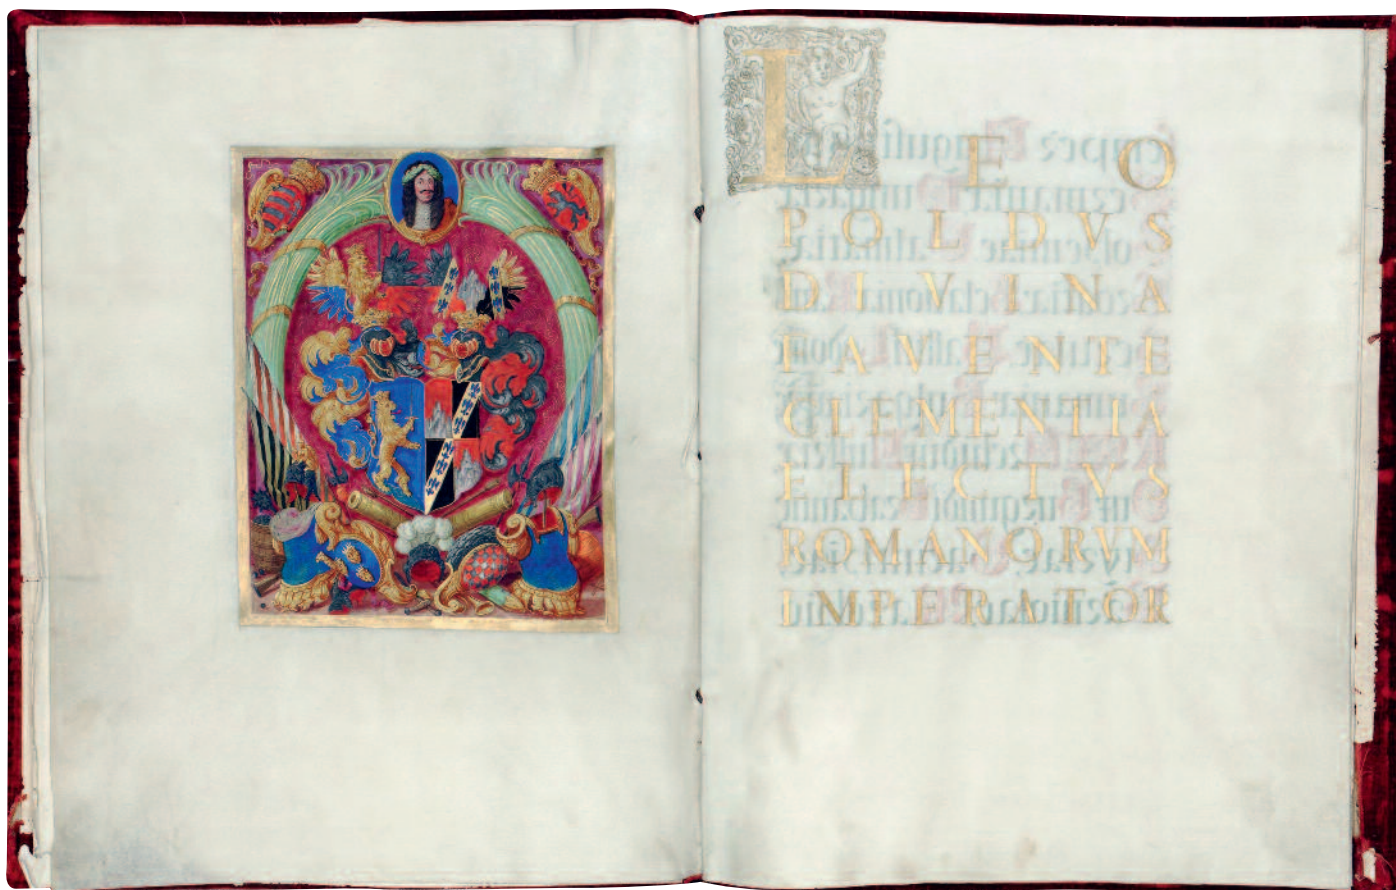 LEO
POLDVS
DIVINA
FAVENTE
CLEMENTIA
ELECTVS
ROMANORVM
IMPERATOR